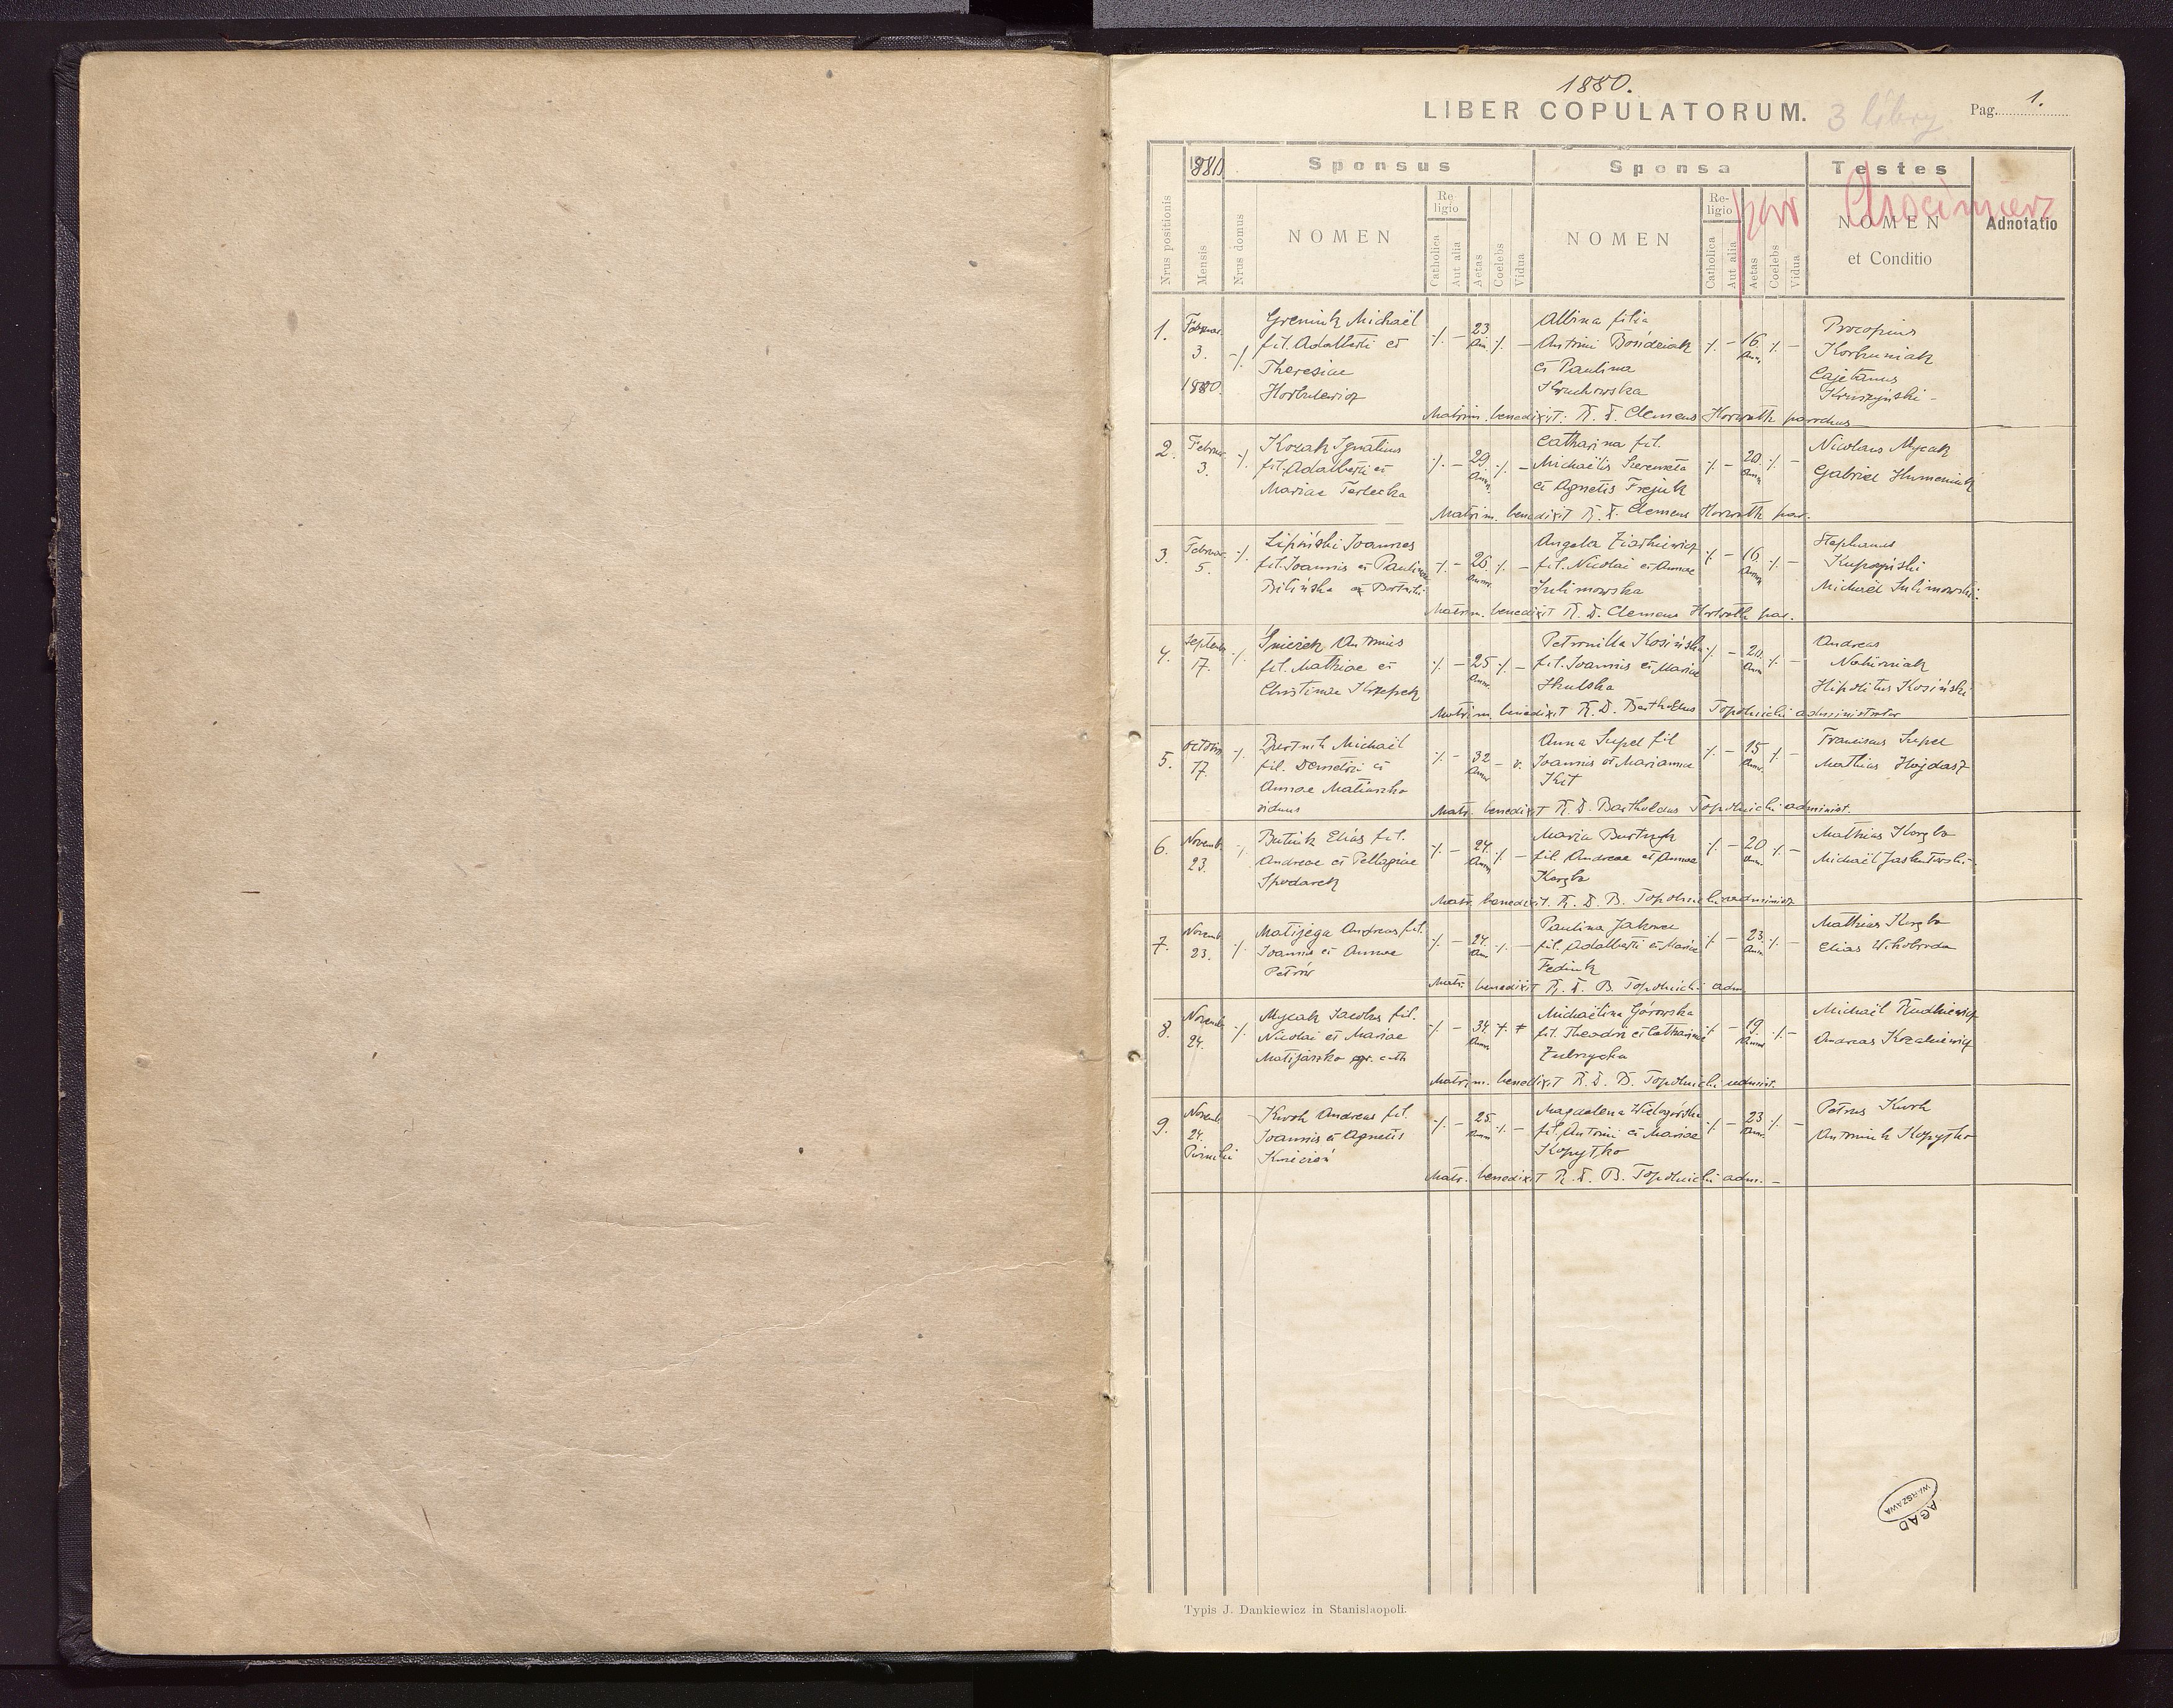 1880.
LIBER COPULATORUM. 3 libry Pag. 1.
1880 Sponsus Sponsa Testes
Nrus positionis Mensis Nrus domus NOMEN Religio Catholica Aut alia Aetas Coelebs Vidua NOMEN Religio Catholica Aut alia Aetas Coelebs Vidua NOMEN et Conditio Adnotatio
par Chocimierz
1. Februar. 3. 1880.
Greniuk Michaël
fil. Adalberti et
Theresiae
Horbulewicz
23 Ann.
Albina filia
Antonii Bośdziak
et Paulina
Kruchowska
16. Ann.
Procopius
Korbuniak
Cajetanus
Kruszyński
Matrim. benedixit: R. D. Clemens Horwath parochus
2. Februar. 3.
Kozak Ignatius
fil. Adalberti et
Mariae Terlecka
29. Ann.
Catharina fil.
Michaëlis Szeremeta
et Agnetis Frejuk
20. Ann.
Nicolaus Mycak
Gabriel Humeniuk
Matrim. benedixit R. D. Clemens Horwath par.
3. Februar. 5.
Lipiński Joannes
fil. Joannis et Paulinae
Bilińska
26. Ann.
Angela Ziarkiewicz
fil. Nicolai et Annae
Sulimowska
16. Ann.
Stephanus
Kupczyński
Michaël Sulimowski
Matrim. benedixit R. D. Clemens Horwath par.
4. Septemb. 17.
Śnieżek Antonius
fil. Mathiae et
Christinae Krzepek
25 Ann.
Petronilla Kosińska
fil. Joannis et Mariae
Skulska
20. Ann.
Andreas
Nahirniak
Hipolitus Kosiński
Matrim. benedixit R. D. Bartholdus Topolnicki administrator
5. Octobr. 17.
Burtnik Michaël
fil. Demetri et
Annae Matiaszko
viduus
32 Ann. v.
Anna Supel fil
Joannis et Marianna
Kit
15 Ann.
Franciscus Supel
Mathias Hajdasz
Matr. benedixit R. D. Bartholdus Topolnicki administ.
6. Novemb. 23.
Butiuk Elias fil.
Andreae et Pellagiae
Spodarek
24. Ann.
Maria Burtnyk
fil. Andreae et Annae
Korzba
20 Ann.
Mathias Korzba
Michaël Jaskulowski
Matr. benedixit. R. D. B. Topolnicki administ
7. Novemb. 23.
Matijega Andreas fil.
Joannis et Annae
Petrów
24. Ann
Paulina Jakowa
fil. Adalberti et Mariae
Fediuk
23. Ann.
Mathias Korzba
Elias Wiloboroda
Matr. benedixit R. D. B. Topolnicki adm
8. Novemb. 24.
Mycak Jacobus fil.
Nicolai et Mariae
Matijaszko gr. cath
34. Ann.
Michaëlina Górowska
fil. Theodri et Catharinae
Zubrzycka
19. Ann.
Michaël Rudkiewicz
Andreas Kozakiewicz
Matrim. benedixit R. D. B. Topolnicki admist.
9. Novemb. 24.
Kurh Andreas fil.
Joannis et Agnetis
Kwiecień
25. Ann
Magdalena Wielogórska
fil. Antonii et Mariae
Kopytko
23 Ann.
Petrus Kurh
Antoniuk Kopytko
Matr. benedixit R. D. B. Topolnicki adm.
AGAD
WARSZAWA
Typis J. Dankiewicz in Stanislaopoli.